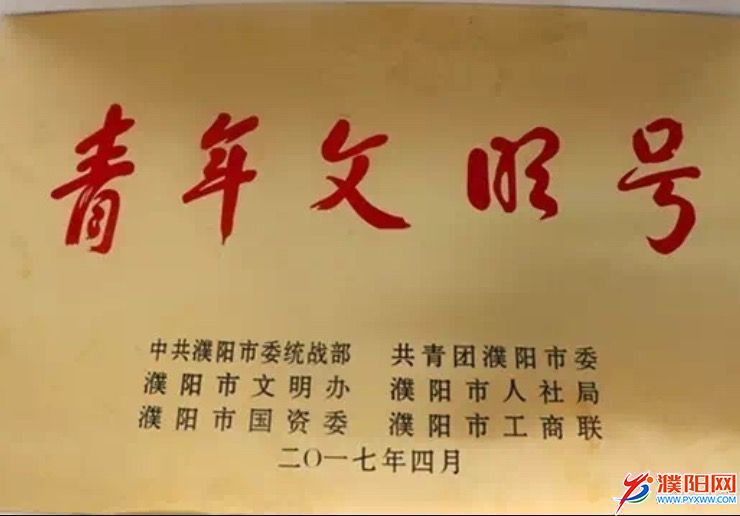 青年文明号
中共濮阳市委统战部 共青团濮阳市委
濮阳市文明办 濮阳市人社局
濮阳市国资委 濮阳市工商联
二〇一七年四月
濮阳网
WWW.PYXWW.COM